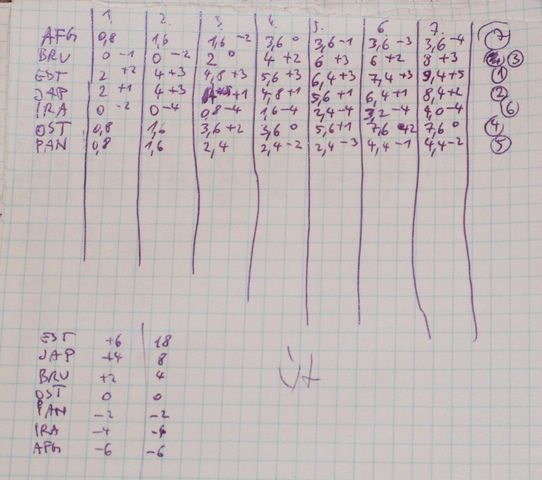 1. 2. 3. 4. 5. 6. 7.
AFG 0,8 1,6 1,6 -2 3,6 0 3,6 -1 3,6 -3 3,6 -4 7
BRU 0 -1 0 -2 2 0 4 +2 6 +3 6 +2 8 +3 3
EST 2 +2 4 +3 4,8 +3 5,6 +3 6,4 +3 7,4 +3 9,4 +5 1
JAP 2 +1 4 +3 +1 4,8 +1 5,6 +1 6,4 +1 8,4 +2 2
IRA 0 -2 0 -4 0,8 -4 1,6 -4 2,4 -4 3,2 -4 4,0 -4 6
OST 0,8 1,6 3,6 +2 3,6 0 5,6 +1 7,6 +2 7,6 0 4
PAN 0,8 1,6 2,4 2,4 -2 2,4 -3 4,4 -1 4,4 -2 5
EST +6 18
JAP +4 8
BRU +2 4
OST 0 0
PAN -2 -2
IRA -4 -4
AFG -6 -6